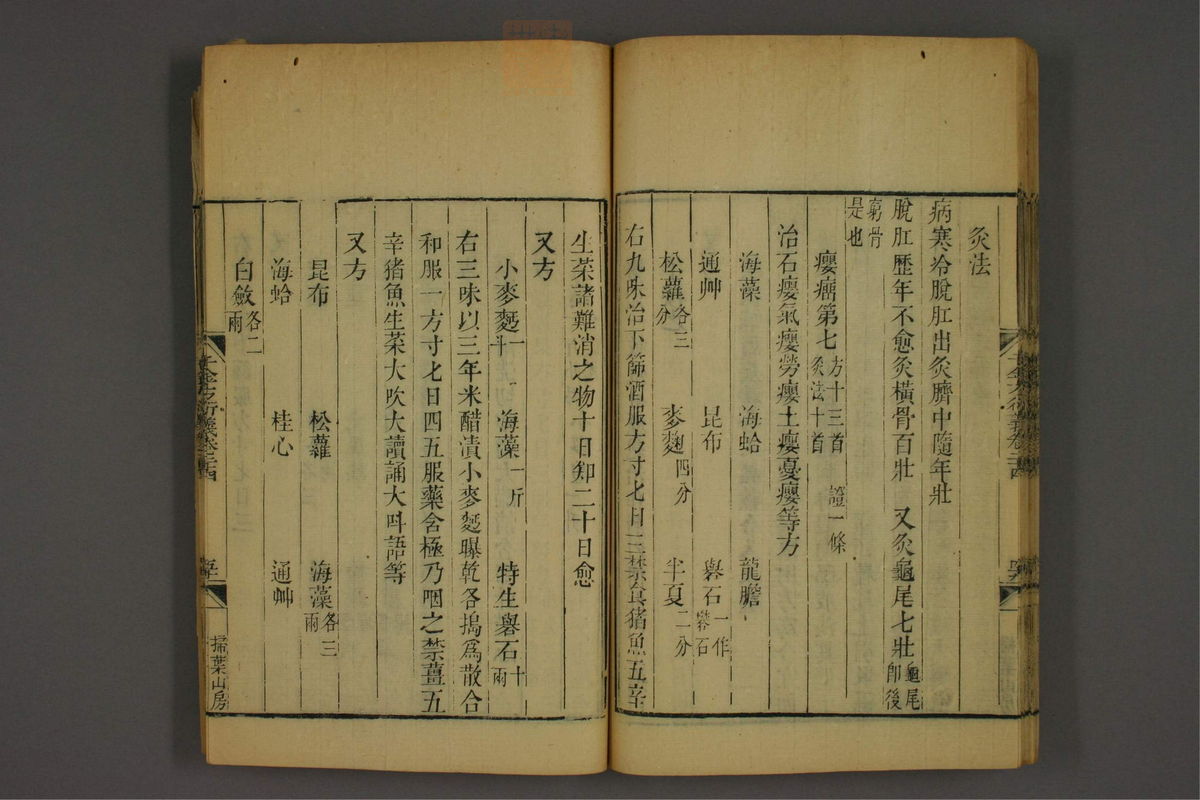 灸法
病寒冷脫肛出灸臍中隨年壯
脫肛歷年不愈灸橫骨百壯　又灸龜尾七壯龜尾卽後
窮骨是也
癭瘤第七方十三首灸法十首　證一條
治石癭氣癭勞癭土癭憂癭等方
海藻　海蛤　龍膽
通艸　昆布　礜石一作礬石
松蘿各三分　麥麴四分　半夏二分
右九味治下篩酒服方寸七日三禁食猪魚五辛
生菜諸難消之物十日知二十日愈
又方
小麥麪一斗　海藻一斤　特生礜石十兩
右三味以三年米醋漬小麥麪曝乾各搗爲散合
和服一方寸七日四五服藥含極乃咽之禁薑五
辛猪魚生菜大吹大讀誦大呌語等
又方
昆布　松蘿　海藻各三兩
海蛤　桂心　通艸
白斂各二兩
千金方衍義卷之二十四
掃葉山房